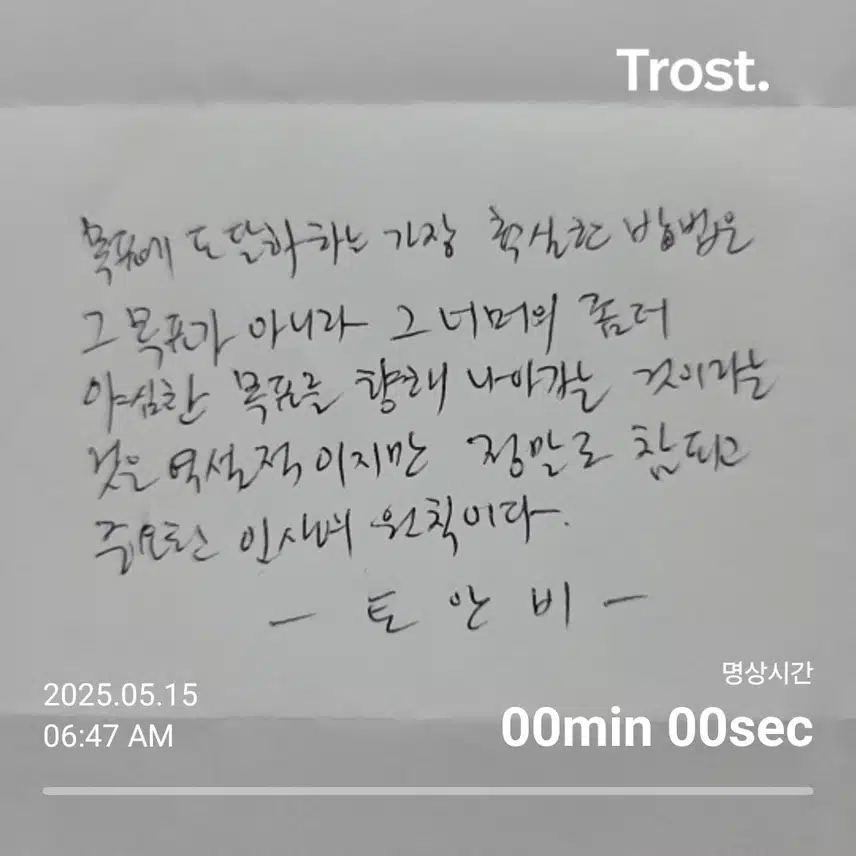 Trost.
목표에 도달하는 가장 확실한 방법은
그 목표가 아니라 그 너머의 좀더
야심찬 목표를 향해 나아가는 것이라는
것은 역설적이지만 정말로 참되고
주요한 인생의 원칙이다.
- 토인비 -
2025.05.15
06:47 AM
명상시간
00min 00sec